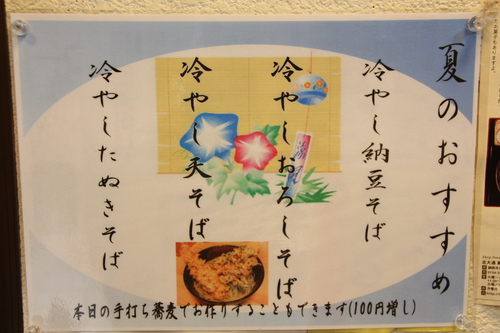 夏のおすすめ
冷やし納豆そば
冷やしおろしそば
冷やし天そば
冷やしたぬきそば
本日の手打ち蕎麦でお作りすることもできます(100円増し)